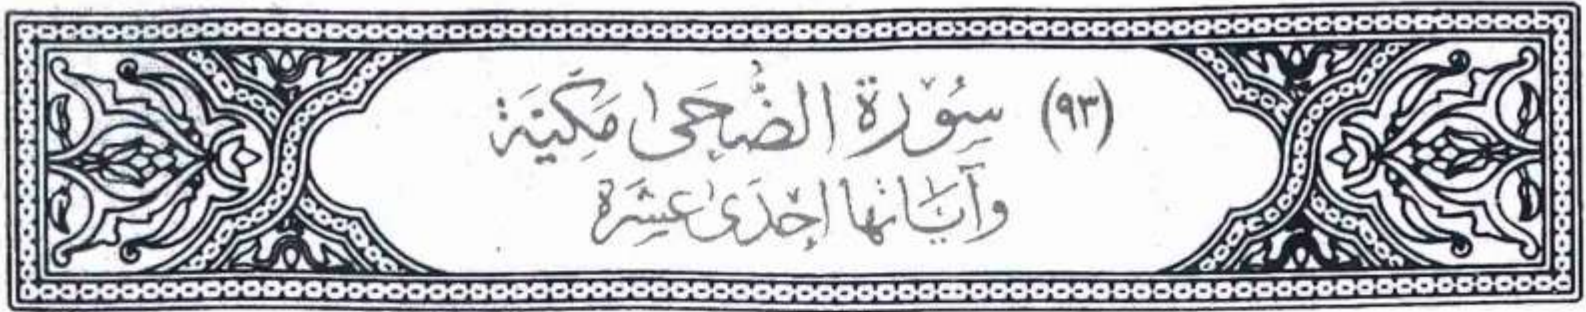 (٩٣) سُوْرَة الضُّحَىٰ مَكِيَّة
وَآيَاتهَا إحْدَىٰ عَشرَة